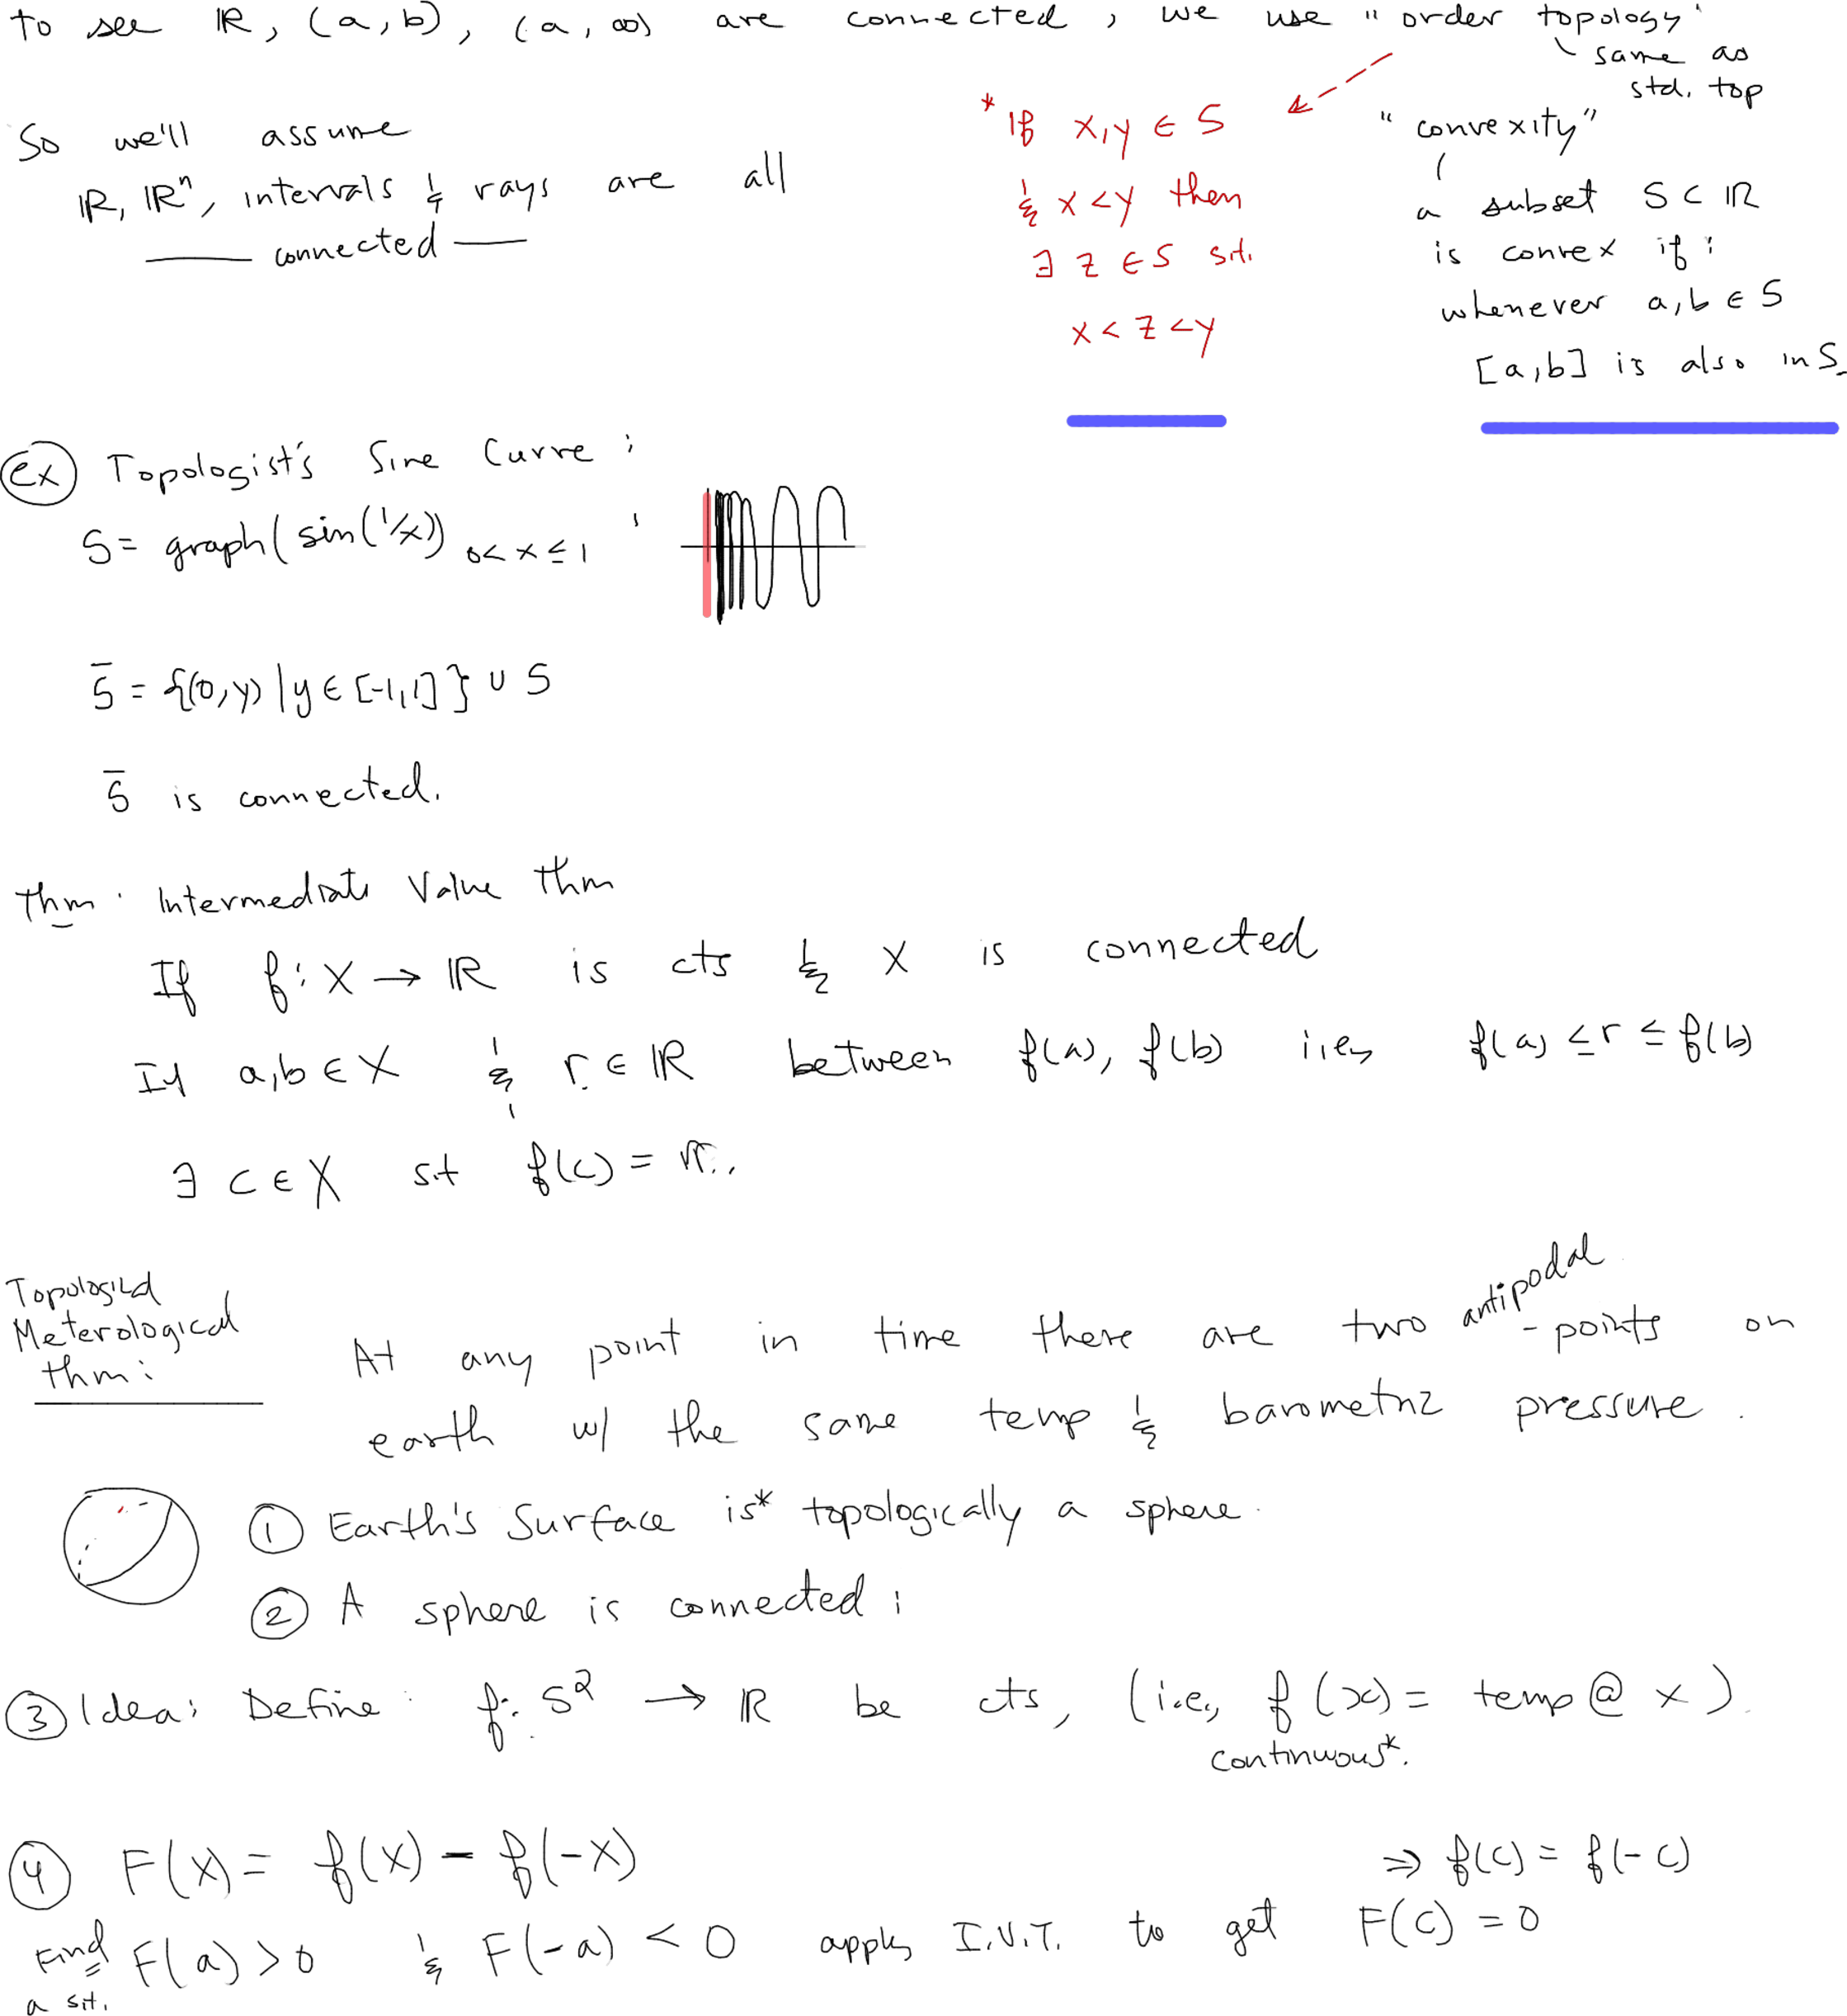 to see ℝ, (a,b), (a,∞) are connected, we use "order topology"
same as
std. top
So we'll assume
ℝ, ℝⁿ, intervals & rays are all
connected
* If x,y ∈ S
& x<y then
∃ z ∈ S s.t.
x < z < y
"convexity"
a subset S ⊂ ℝ
is convex if:
whenever a,b ∈ S
[a,b] is also in S.
ex Topologist's Sine Curve:
S = graph(sin(1/x)) 0< x ≤ 1
S̄ = {(0,y) | y ∈ [-1,1]} ∪ S
S̄ is connected.
thm: Intermediate Value thm
If f: X → ℝ is cts & X is connected
If a,b ∈ X & r ∈ ℝ between f(a), f(b) i.e., f(a) ≤ r ≤ f(b)
∃ c ∈ X s.t f(c) = r.
Topological
Meterological
thm:
At any point in time there are two antipodal - points on
earth w/ the same temp & barometric pressure.
① Earth's Surface is* topologically a sphere.
② A sphere is connected:
③ Idea: Define: f: S² → ℝ be cts, (i.e, f(x) = temp @ x).
continuous*.
④ F(x) = f(x) - f(-x) ⇒ f(c) = f(-c)
Find F(a) > 0 & F(-a) < 0 apply I.V.T. to get F(c) = 0
a s.t.